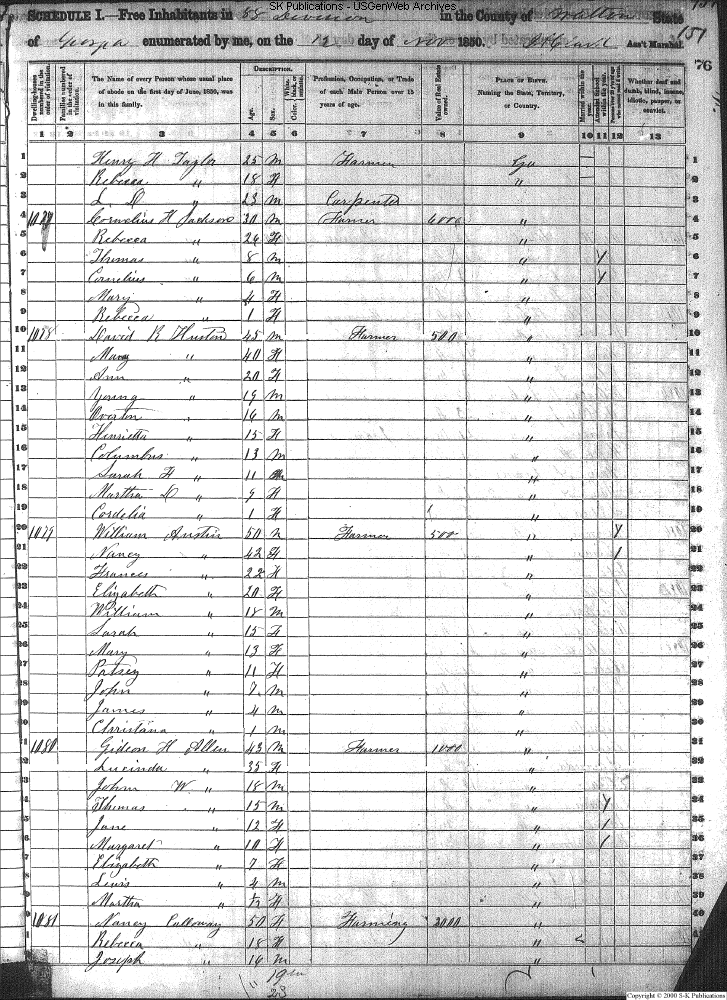 SK Publications - USGenWeb Archives
SCHEDULE I.—Free Inhabitants in 88 Division in the County of Walton State
of Georgia enumerated by me, on the 12 day of Nov 1850. Ass't Marshal.
151
76
Dwelling-houses numbered in the order of visitation.
Families numbered in the order of visitation.
The Name of every Person whose usual place of abode on the first day of June, 1850, was in this family.
DESCRIPTION.
Age.
Sex.
Color, White, black, or mulatto.
Profession, Occupation, or Trade of each Male Person over 15 years of age.
Value of Real Estate owned.
PLACE OF BIRTH. Naming the State, Territory, or Country.
Married within the year.
Attended School within the year.
Whether deaf and dumb, blind, insane, idiotic, pauper, or convict.
1 2 3 4 5 6 7 8 9 10 11 12 13
1 Henry H Taylor 25 m Farmer Ga 1
2 Rebecca " 18 F " 2
3 L D " 23 m Carpenter 3
4 Cornelius H Jackson 30 m Farmer " 4
5 Rebecca " 26 F " 5
6 Thomas " 8 m " / 6
7 Cornelius " 6 m " / 7
8 Mary " 4 F " 8
9 Rebecca " 1 F " 9
10 1078 David R Huston 45 m Farmer 500 " 10
11 Mary " 40 F " 11
12 Ann " 20 F " 12
13 Young " 19 m " 13
14 Overton " 16 m " 14
15 Henrietta " 15 F " 15
16 Columbus " 13 m " 16
17 Sarah F " 11 " 17
18 Martha D " 9 F " 18
19 Cordelia " 1 F " 19
20 1079 William Austin 50 m Farmer 500 " / 20
21 Nancy " 42 F " / 21
22 Frances " 22 F " 22
23 Elizabeth " 20 F " 23
24 William " 18 m " 24
25 Sarah " 15 F " 25
26 Mary " 13 F " 26
27 Patsey " 11 F " 27
28 John " 7 m " 28
29 James " 4 m " 29
30 Christana " 1 m " 30
31 1080 Gideon H Allen 43 m Farmer 1000 " 31
32 Lucinda " 35 F " 32
33 John W " 18 m " 33
34 Thomas " 15 m " / 34
35 Jane " 12 F " / 35
36 Margaret " 10 F " / 36
37 Elizabeth " 7 F " 37
38 Lewis " 4 m " 38
39 Martha " F " 39
40 1081 Nancy Calloway 50 F Farming 2000 " 40
41 Rebecca " 18 F " 41
Joseph " 16 m "
19 m
23
Copyright © 2000 S-K Publications